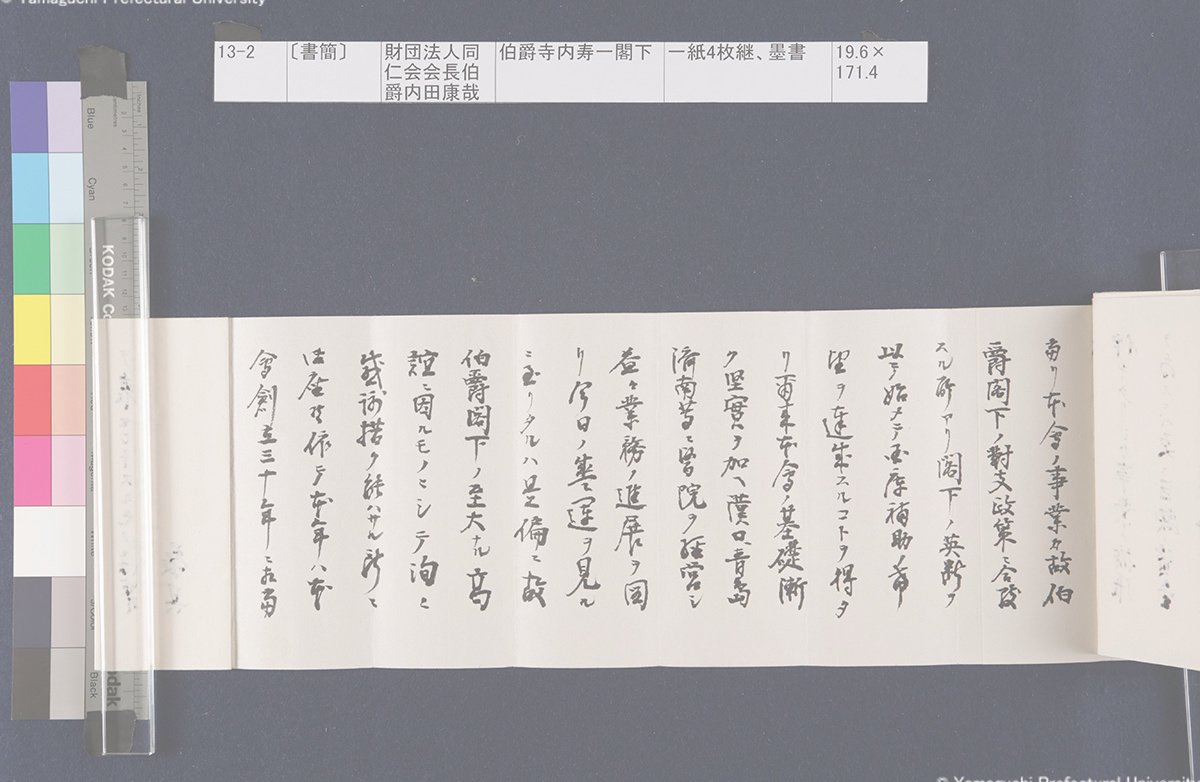 © Yamaguchi Prefectural University
13-2
〔書簡〕
財団法人同
仁会会長伯
爵内田康哉
伯爵寺内寿一閣下
一紙4枚継、墨書
19.6×
171.4
Blue
Cyan
KODAK Co
Black
リ本會ノ事業カ故伯
爵閣下ノ對支政策ニ合致
スル所アリ閣下ノ英断ヲ
以テ始メテ国庫補助ノ希
望ヲ達成スルコトヲ得タ
リ爾来本會ノ基礎漸
ク堅實ヲ加ヘ漢口青島
済南等ニ醫院ヲ経営シ
益々業務ノ進展ヲ図
リ今日ノ盛運ヲ見ル
ニ至リタルハ是偏ニ故
伯爵閣下ノ至大ナル高
誼ニ因ルモノニシテ洵ニ
感謝措ク能ハサル所ニ
御座候依テ本年ハ本
會創立三十年ニ相當
© Yamaguchi Prefectural Univers